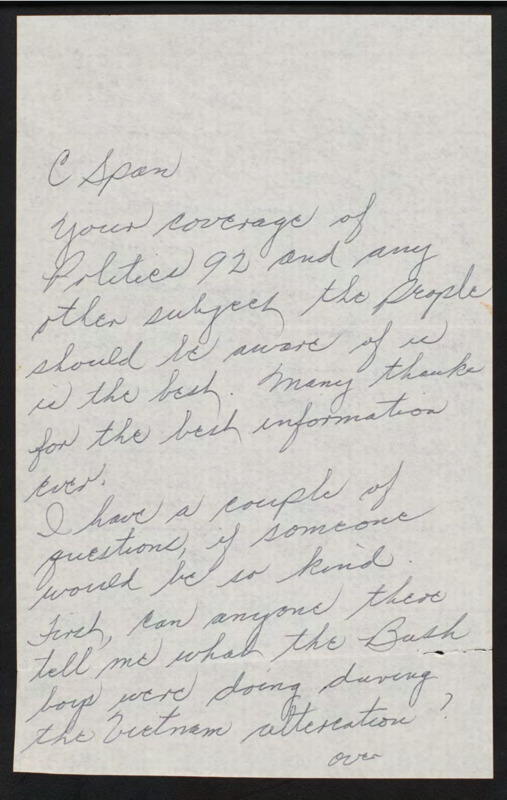 C Span
Your coverage of
Politics 92 and any
other subject the people
should be aware of is
is the best. Many thanks
for the best information
ever.
I have a couple of
questions, if someone
would be so kind.
First, can anyone there
tell me what the Bush
boys were doing during
the Vietnam altercation?
over